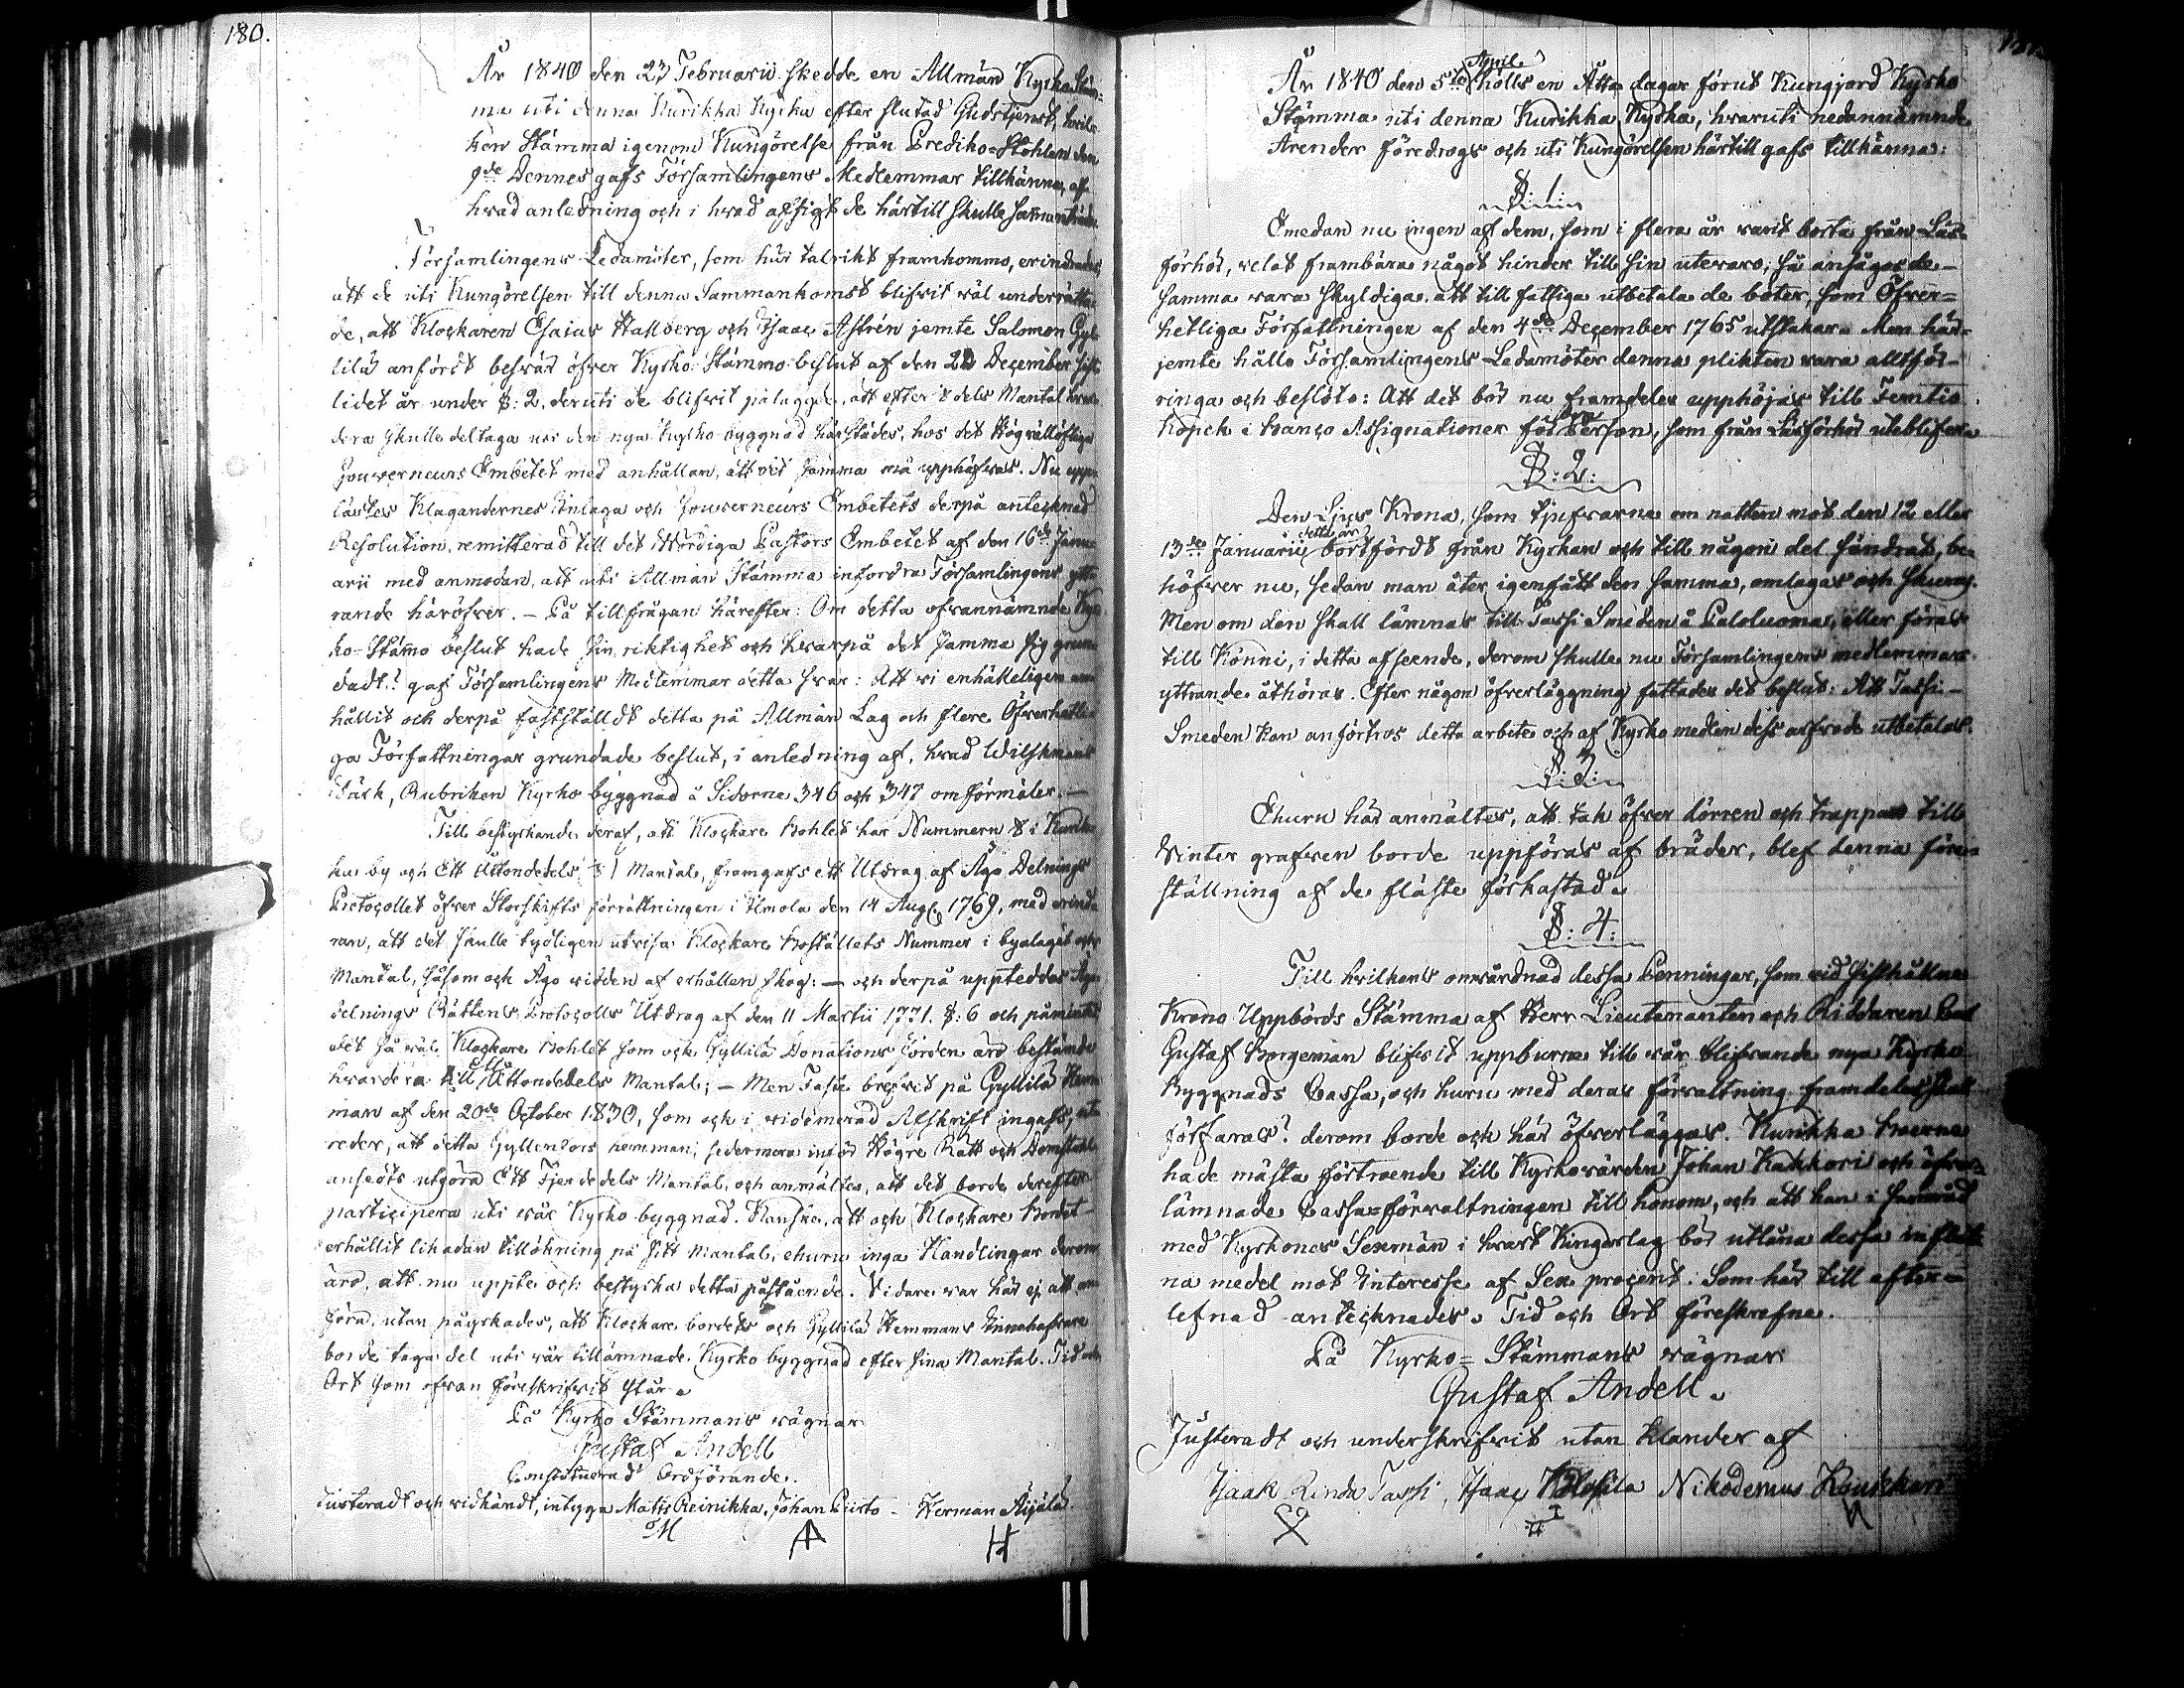 180.
År 1840 den 23 Februarii skedde en Allmän Kyrko Stäm=
ma uti denna Kurikka Kyrka efter slutad Gudstjenst, hvil=
ken Stämma igenom Kungörelse från Prediko=Stohlen den
9de Dennes gafs Församlingens Medlemmar tillkänna, af
hvad anledning och i hvad afsigt de härtill skulle sammanträda.
Församlingens Ledamöter, som här talrikt framkommo, erindrades
att de uti Kungörelsen till denna Sammankomst blifvit väl underrätta
de, att Klockaren Esaias Hallberg och Isaac Astrén jemte Salomon Gyl
lilä anfördt besvär öfver Kyrko-Stämmo beslut af den 22 December sist
lidet år under §: 2, deruti de blifvit pålagde, att efter dels Mantal hvar
dera skulle deltaga uti den nya Kyrko byggnad härstädes, hos det Högvällofliga
Gouverneurs Embetet med anhållan, att det samma må upphäfvas. Nu upp
lästes Klagandernes Inlaga och Gouverneurs Embetets derpå antecknad
Resolution, remitterad till det Wördiga Pastors Embetet af den 16de Janu=
arii med anmodan, att uti Allmän Stämma infordra Församlingens ytt
rande häröfver. – På tillfrågan härefter: Om detta ofvannämnde Kyr
ko-Stämo beslut hade sin riktighet och hvarpå det samma sig grun
dadt? gaf Församlingens Medlemmar detta svar: Att vi enhälleligen
hållit och derpå fastställdt detta på Allmän Lag och flere Öfverhetli
ga Författningar grundade beslut, i anledning af, hvad Wilskmans
Wärk, Rubriken Kyrko byggnad å Sidorna 346 och 347 omförmäler. –
Till bestyrkande deraf, att Klockare Bohlet har Nummern 8 i Kurik
ka by och Ett Åttondedels Mantal, framgafs ett Utdrag af Ägo Delnings
Protocollet öfver Storskifts förrättningen i Ilmola den 14 Aug. 1769, med erind
ran, att det skulle tydligen utvisa Klockare Boställets Nummer i byalaget och
Mantal, såsom och Ägo vidden af erhållen skog: – och derpå uppteddes Ägo
delnings Rättens Protocolls Utdrag af den 11 Martii 1771. §: 6 och påminte
det så väl Klockare Bohlet som och Gyllilä Donations Jorden äro bestämde
hvardera till Ett Åttondedels Mantal; – Men Faste brefvet på Gyllilä Hem
man af den 20de October 1830, som och i vidimerad Afskrift ingafs, ut
reder, att detta Gyllendors hemman, sedermera inför Högre Rätt och Domstohl
ansedts utgöra Ett Fjerdedels Mantal, och anmältes, att det borde derefter
participera uti vår Kyrko byggnad. Kanske, att och Klockare Bordet
erhållit likadan tillökning på sitt Mantal, ehuru inga Handlingar derom
äro, att nu uppte och bestyrka detta påstående. Vidare var här ej att an
föra, utan påyrkades, att Klockare bordets och Gyllilä Hemmans Innehafvare
borde taga del uti vår tillämnade Kyrko byggnad efter sina Mantal. Tid och
Ort som ofvan föreskrifvit står.
På Kyrko Stämmans vägnar
Gustaf Andell
Constituerad Ordförande.
Justeradt och vidkändt, intyga Matts Reinikka, Johan Piirto – Herman Äijälä
M A H
År 1840 den 5te April hölls en Åtta dagar förut Kungjord Kyrko
Stämma uti denna Kurikka Kyrka, hvaruti nedannämnde
Ärender föredrogs och uti Kungörelsen härtill gafs tillkänna:
§: 1:
Emedan nu ingen af dem, som i flera år varit borta från Läs=
förhör, velat frambära något hinder till sin utevaro; så ansågos de
samma vara skyldiga att till fattiga utbetala de böter, som Öfver=
hetliga Författningen af den 4de December 1765 utstakar. Men här
jemte hålla Församlingens Ledamöter denna plikten vara alltför
ringa och beslöto: Att det bör nu framdeles upphöjas till Femtio
Kopek i Banco Assignationer för hvar Person, som från Läsförhör uteblifver
§: 2:
Den Ljus Krona, som tjufvarne om natten mot den 12 eller
13de Januarii detta år bortfördt från Kyrkan och till någon del söndrat, be
höfver nu, sedan man åter igenfått den samma, omlagas och skuras.
Men om den skall lämnas till Tassi Smeden å Paloluoma, eller föras
till Könni, i detta afseende, derom skulle nu Församlingens medlemmars
yttrande åthöras. Efter någon öfverläggning fattades det beslut: Att Tassi
Smeden kan anförtros detta arbete och af Kyrko medlen dess arfvode utbetalas.
§: 3:
Ehuru här anmältes, att tak öfver dörren och trappan till
Vinter grafven borde uppföras af bräder, blef denna före
ställning af de fläste förkastad.
§: 4:
Till hvilkens omvårdnad dessa Penningar, som vid sisthållne
Krono Uppbörds Stämma af Herr Lieutenanten och Riddaren Carl
Gustaf Borgeman blifvit uppburne till vår blifvande nya Kyrko
Byggnads Cassa, och huru med deras förvaltning framdeles skall
förfaras? derom borde och här öfverläggas. Kurikka Boerna
hade mästa förtroende till Kyrkovärden Johan Kakkori och öfver=
lämnade Cassa=förvaltningen till honom, och att han i samråd
med Kyrkones Sexmän i hvart Ringarlag bör utlåna dessa influt
na medel mot Interesse af Sex procent. Som här till efter=
lefnad antecknades. Tid och Ort föreskrefne.
På Kyrko=Stämmans vägnar
Gustaf Andell.
Justeradt och underskrifvit utan klander af
Isaak Rinda Tassi, Isaac Nikodemus Koukkari